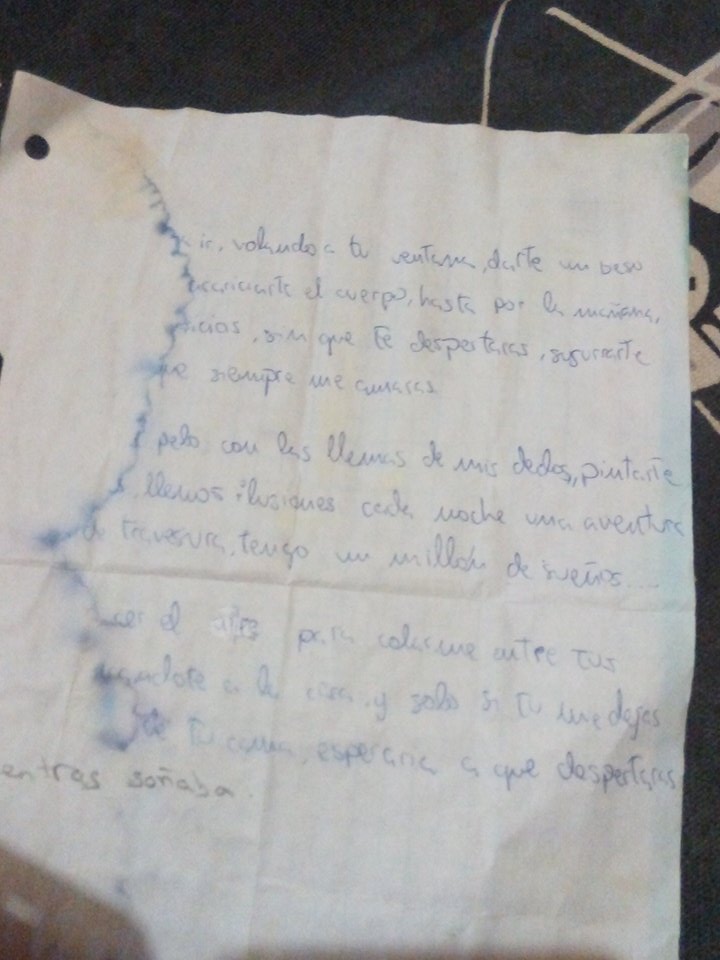 ir, volando a tu ventana, darte un beso
acariciarte el cuerpo, hasta por la mañana,
sin que te despertaras, susurrarte
que siempre me amaras
pelo con las llemas de mis dedos, pintarte
llenos ilusiones cada noche una aventura
travesura, tengo un millón de sueños....
ser el aire para colarme entre tus
a la cara, y solo si tu me dejas
de tu cama, esperaria a que despertaras
entras soñaba.